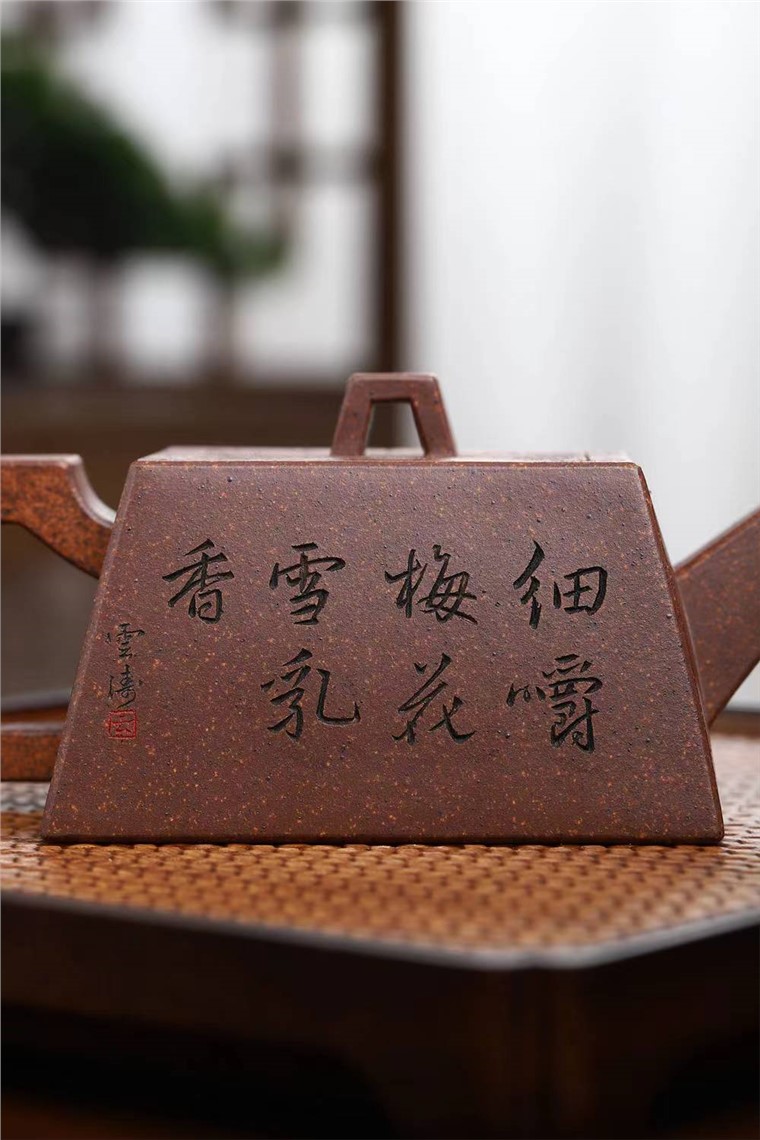 细嚼
梅花
雪乳
香
雲濤